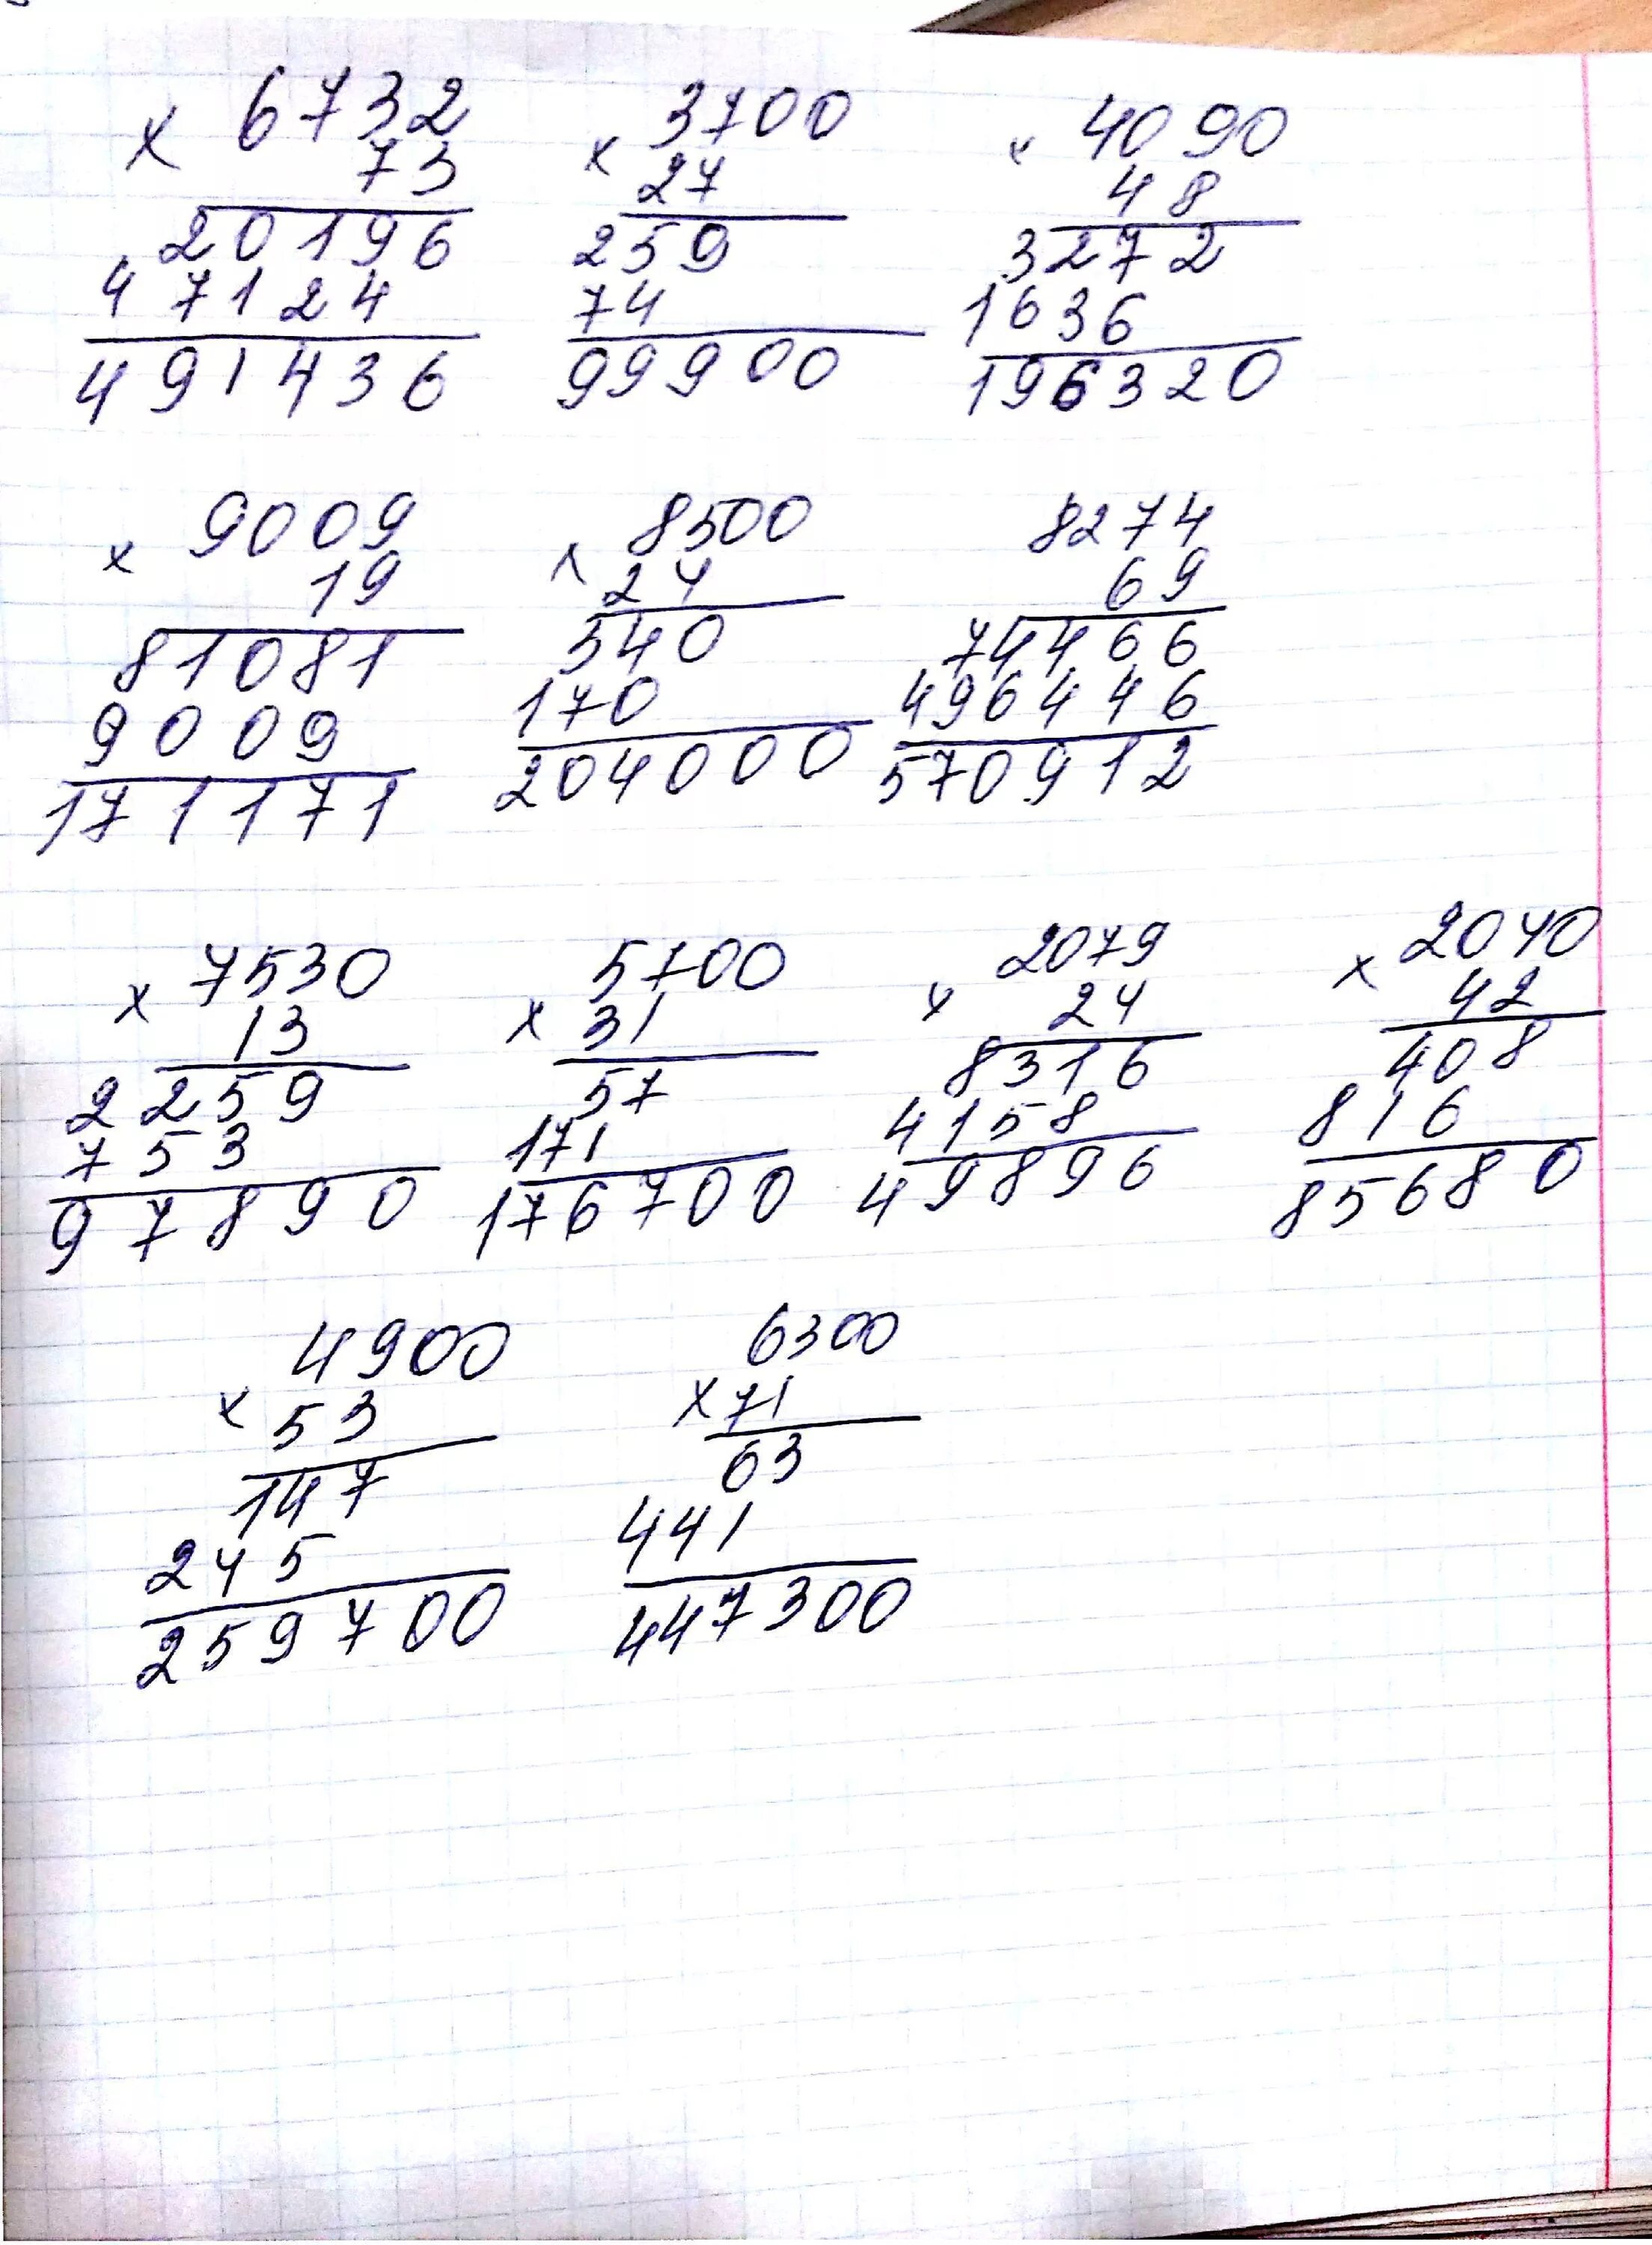 6732 3700 4090
x 73 x 27 x 48
20196 259 3272
47124 74 1636
491436 99900 196320
9009 8500 8274
x 19 x 24 69
81081 340 74466
9009 170 496446
171171 204000 570912
7530 5700 2079 2040
x 13 x 31 x 24 x 42
2259 57 8316 408
753 171 4158 816
97890 176700 49896 85680
4900 6300
x 53 x 71
147 63
245 441
259700 447300